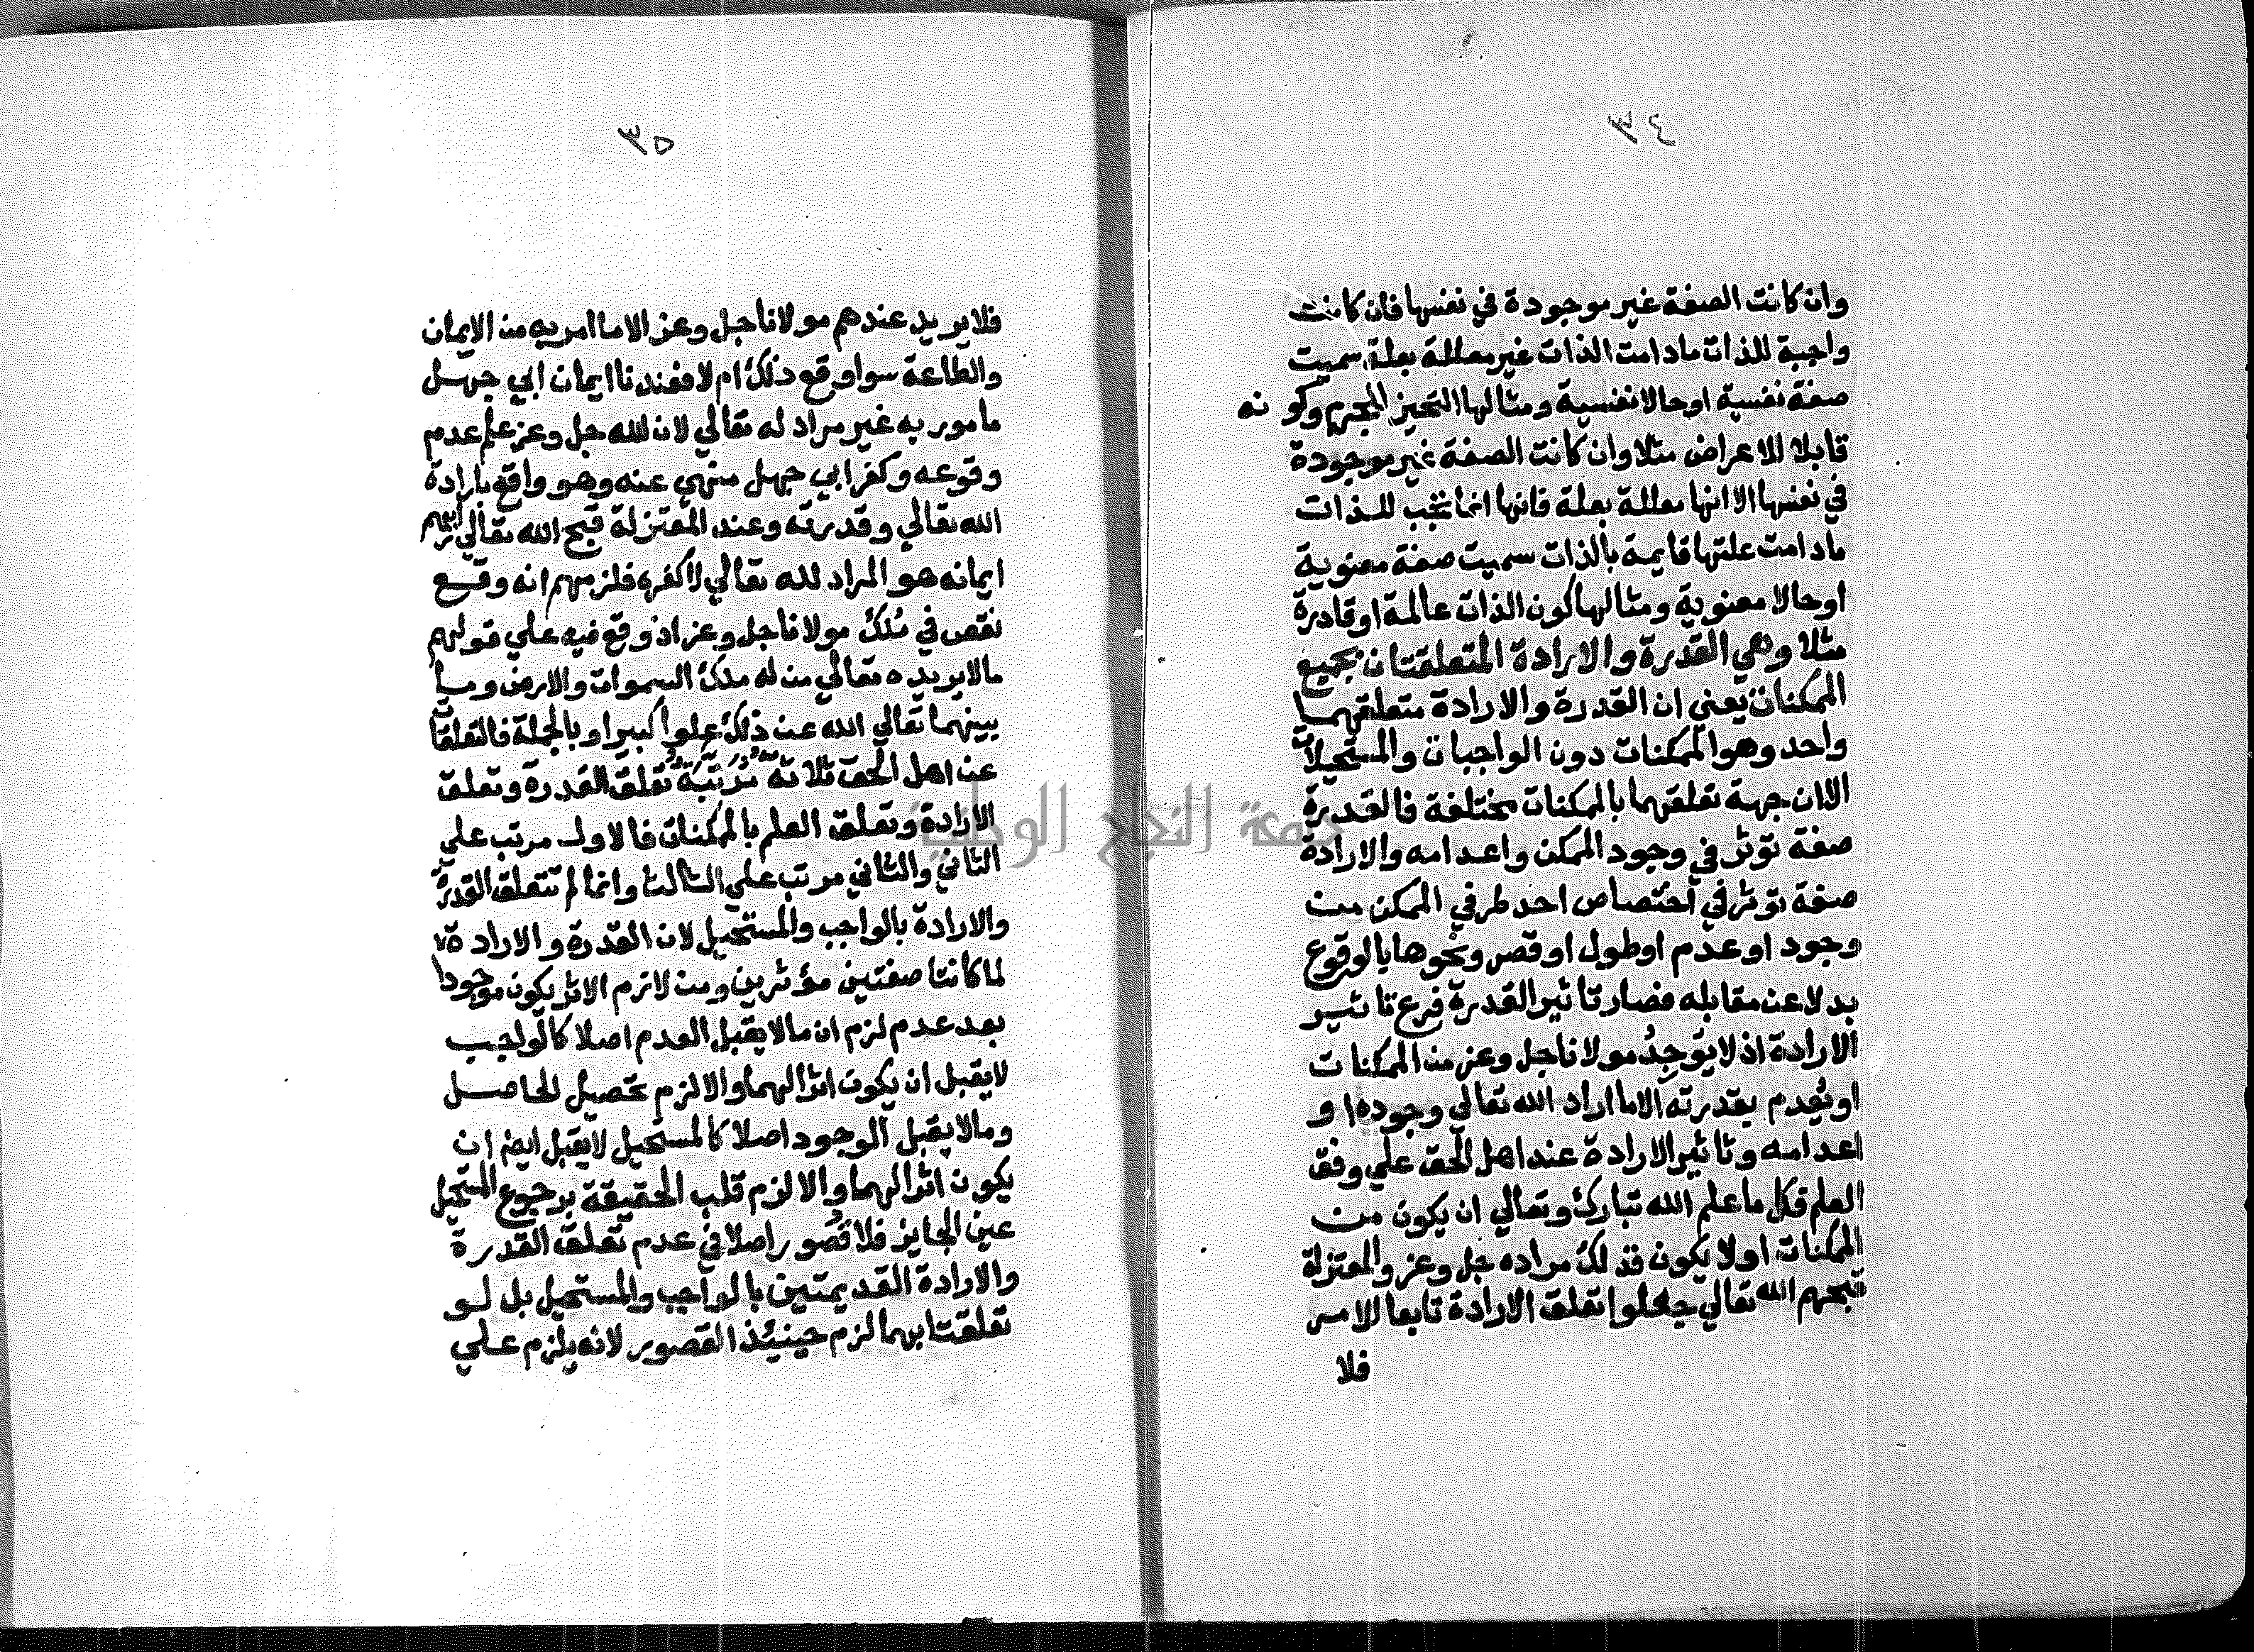 ٣٤
وان كانت الصفة غير موجودة في نفسها فان كانت
واجبة للذات مادامت الذات غير معللة بعلة سميت
صفة نفسية اوحالا نفسية ومثالها التحيز للجرم وكونه
قابلا للاعراض مثلا وان كانت الصفة غير موجودة
في نفسها الا انها معللة بعلة فانها انما تجب للذات
مادامت علتها قايمة بالذات سميت صفة معنوية
اوحالا معنوية ومثالها كون الذات عالمة اوقادرة
مثلا وهي القدرة والارادة المتعلقتان بجميع
الممكنات يعني ان القدرة والارادة متعلقهما
واحد وهو الممكنات دون الواجبات والمستحيلات
الاان جهة تعلقهما بالممكنات مختلفة فالقدرة
صفة توثر في وجود الممكن واعدامه والارادة
صفة توثر في اختصاص احد طرفي الممكن من
وجود اوعدم اوطول اوقصر ونحوها بالوقوع
بدلا عن مقابله فصار تاثير القدرة فرع تاثير
الارادة اذ لا يوجِدُ مولانا جل وعز من الممكنات
اويُعدم بقدرته الاما اراد الله تعالي وجوده او
اعدامه وتاثير الارادة عند اهل الحق علي وفق
العلم فكل ماعلم الله تبارك وتعالي ان يكون من
الممكنات اولا يكون فذلك مراده جل وعز والمعتزلة
قبحهم الله تعالي جعلوا تعلق الارادة تابعا للامر
فلا
٣٥
فلا يريد عندهم مولانا جل وعز الاما امر به من الايمان
والطاعة سوا وقع ذلك ام لا فعندنا ايمان ابي جهل
مامور به غير مراد له تعالي لان الله جل وعز علم عدم
وقوعه وكفر ابي جهل منهي عنه وهو واقع بارادة
الله تعالي وقدرته وعند المعتزلة قبح الله تعالي رايهم
ايمانه هو المراد لله تعالي لا كفره فلزمهم انه وقع
نقص في مُلك مولانا جل وعز اذ وقع فيه علي قولهم
مالا يريده تعالي من له ملك السموات والارض وما
بينهما تعالي الله عن ذلك علوا كبيرا وبالجلة فالتعلقات
عند اهل الحق ثلاثة مُرَتَّبَة تعلق القدرة وتعلق
الارادة وتعلق العلم بالممكنات فالاول مرتب علي
الثاني والثاني مرتب علي الثالث وانما لم تتعلق القدرة
والارادة بالواجب والمستحيل لان القدرة والارادة
لما كانتا صفتين مؤثرين ومن لازم الاثر يكون موجودا
بعد عدم لزم ان مالا يقبل العدم اصلا كالواجب
لايقبل ان يكون اثرا لهما والا لزم تحصيل الحاصل
ومالا يقبل الوجود اصلا كالمستحيل لا يقبل ايض ان
يكون اثرا لهما والا لزم قلب الحقيقة برجوع المستحيل
عين الجايز فلا قُصُور اصلا في عدم تعلق القدرة
والارادة القديمتين بالواجب والمستحيل بل لو
تعلقتا بهما لزم حينئذ القصور لانه يلزم علي
جامعة النجاح الوطنية